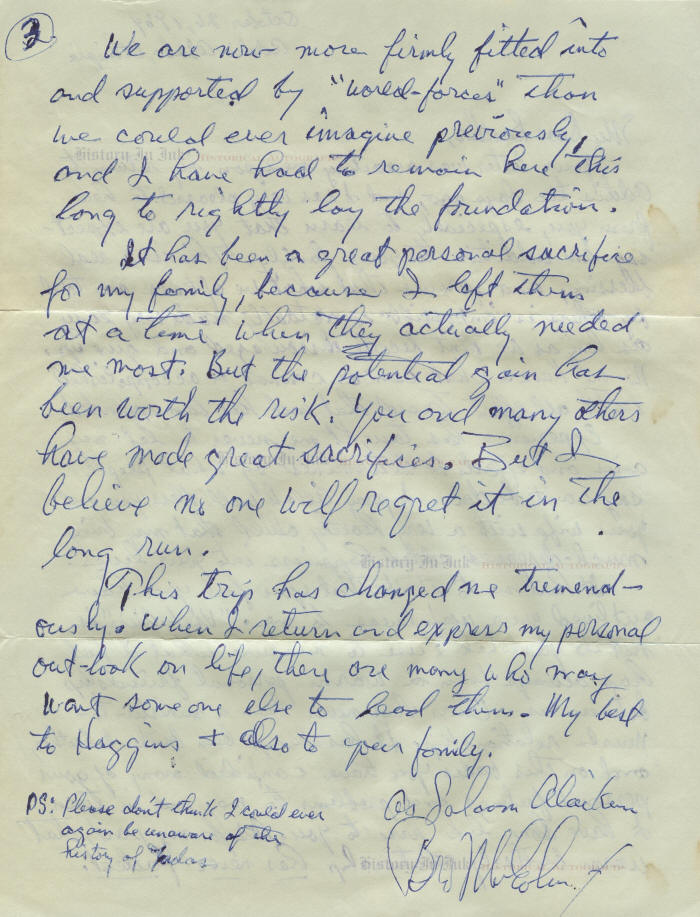 2
We are now more firmly fitted into
and supported by "world-forces" than
we could ever imagine previously,
and I have had to remain here this
long to rightly lay the foundation.
It has been a great personal sacrifice
for my family, because I left them
at a time when they actually needed
me most. But the potential gain has
been worth the risk. You and many others
have made great sacrifices. But I
believe no one will regret it in the
long run.
This trip has changed me tremend-
ously. When I return and express my personal
out-look on life, there are many who may
want someone else to lead them. My best
to Haggins + also to your family.
As Salaam Alaikum
Bro Malcolm X
PS: Please don't think I could ever
again be unaware of the
history of Judas
History In Ink
History In Ink
History In Ink